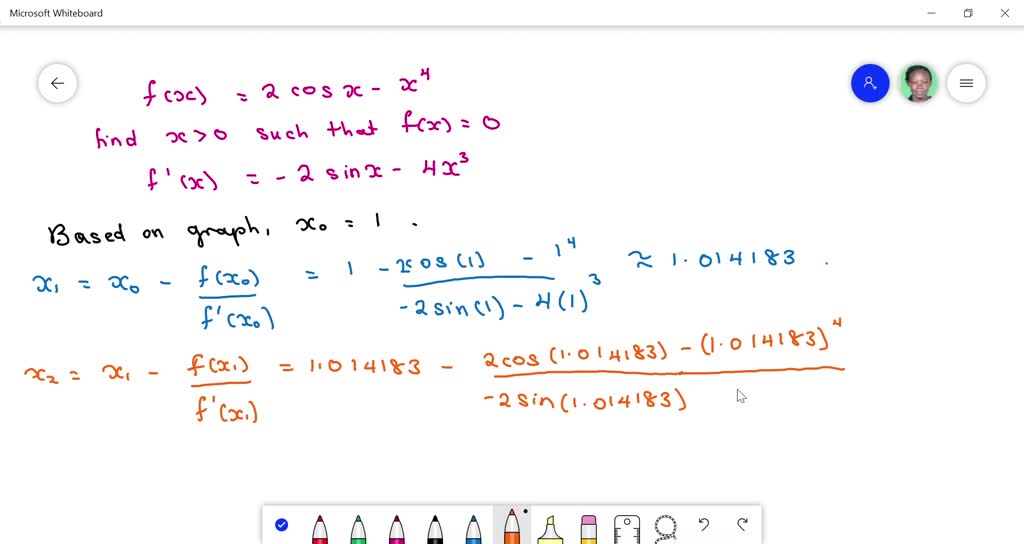 Microsoft Whiteboard
f(x) = 2 cos x - x⁴
find x > 0 such that f(x) = 0
f'(x) = - 2 sin x - 4x³
Based on graph, x₀ = 1 .
x₁ = x₀ - f(x₀)/f'(x₀) = 1 - 2cos(1) - 1⁴/-2sin(1) - 4(1)³ ≈ 1.014183 .
x₂ = x₁ - f(x₁)/f'(x₁) = 1.014183 - 2cos(1.014183) - (1.014183)⁴/-2sin(1.014183)